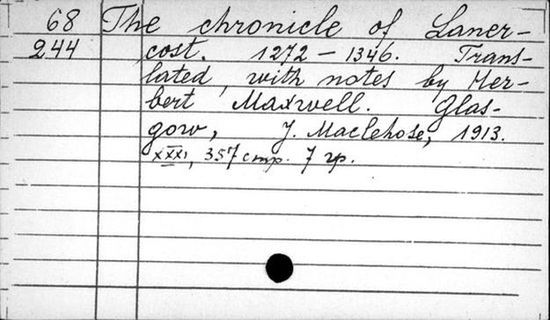 68 The chronicle of Laner-
244 cost. 1272 – 1346. Trans-
lated, with notes by Her-
bert Maxwell. Glas-
gow, J. Maclehose, 1913.
XXXI, 357 стр. 7 гр.